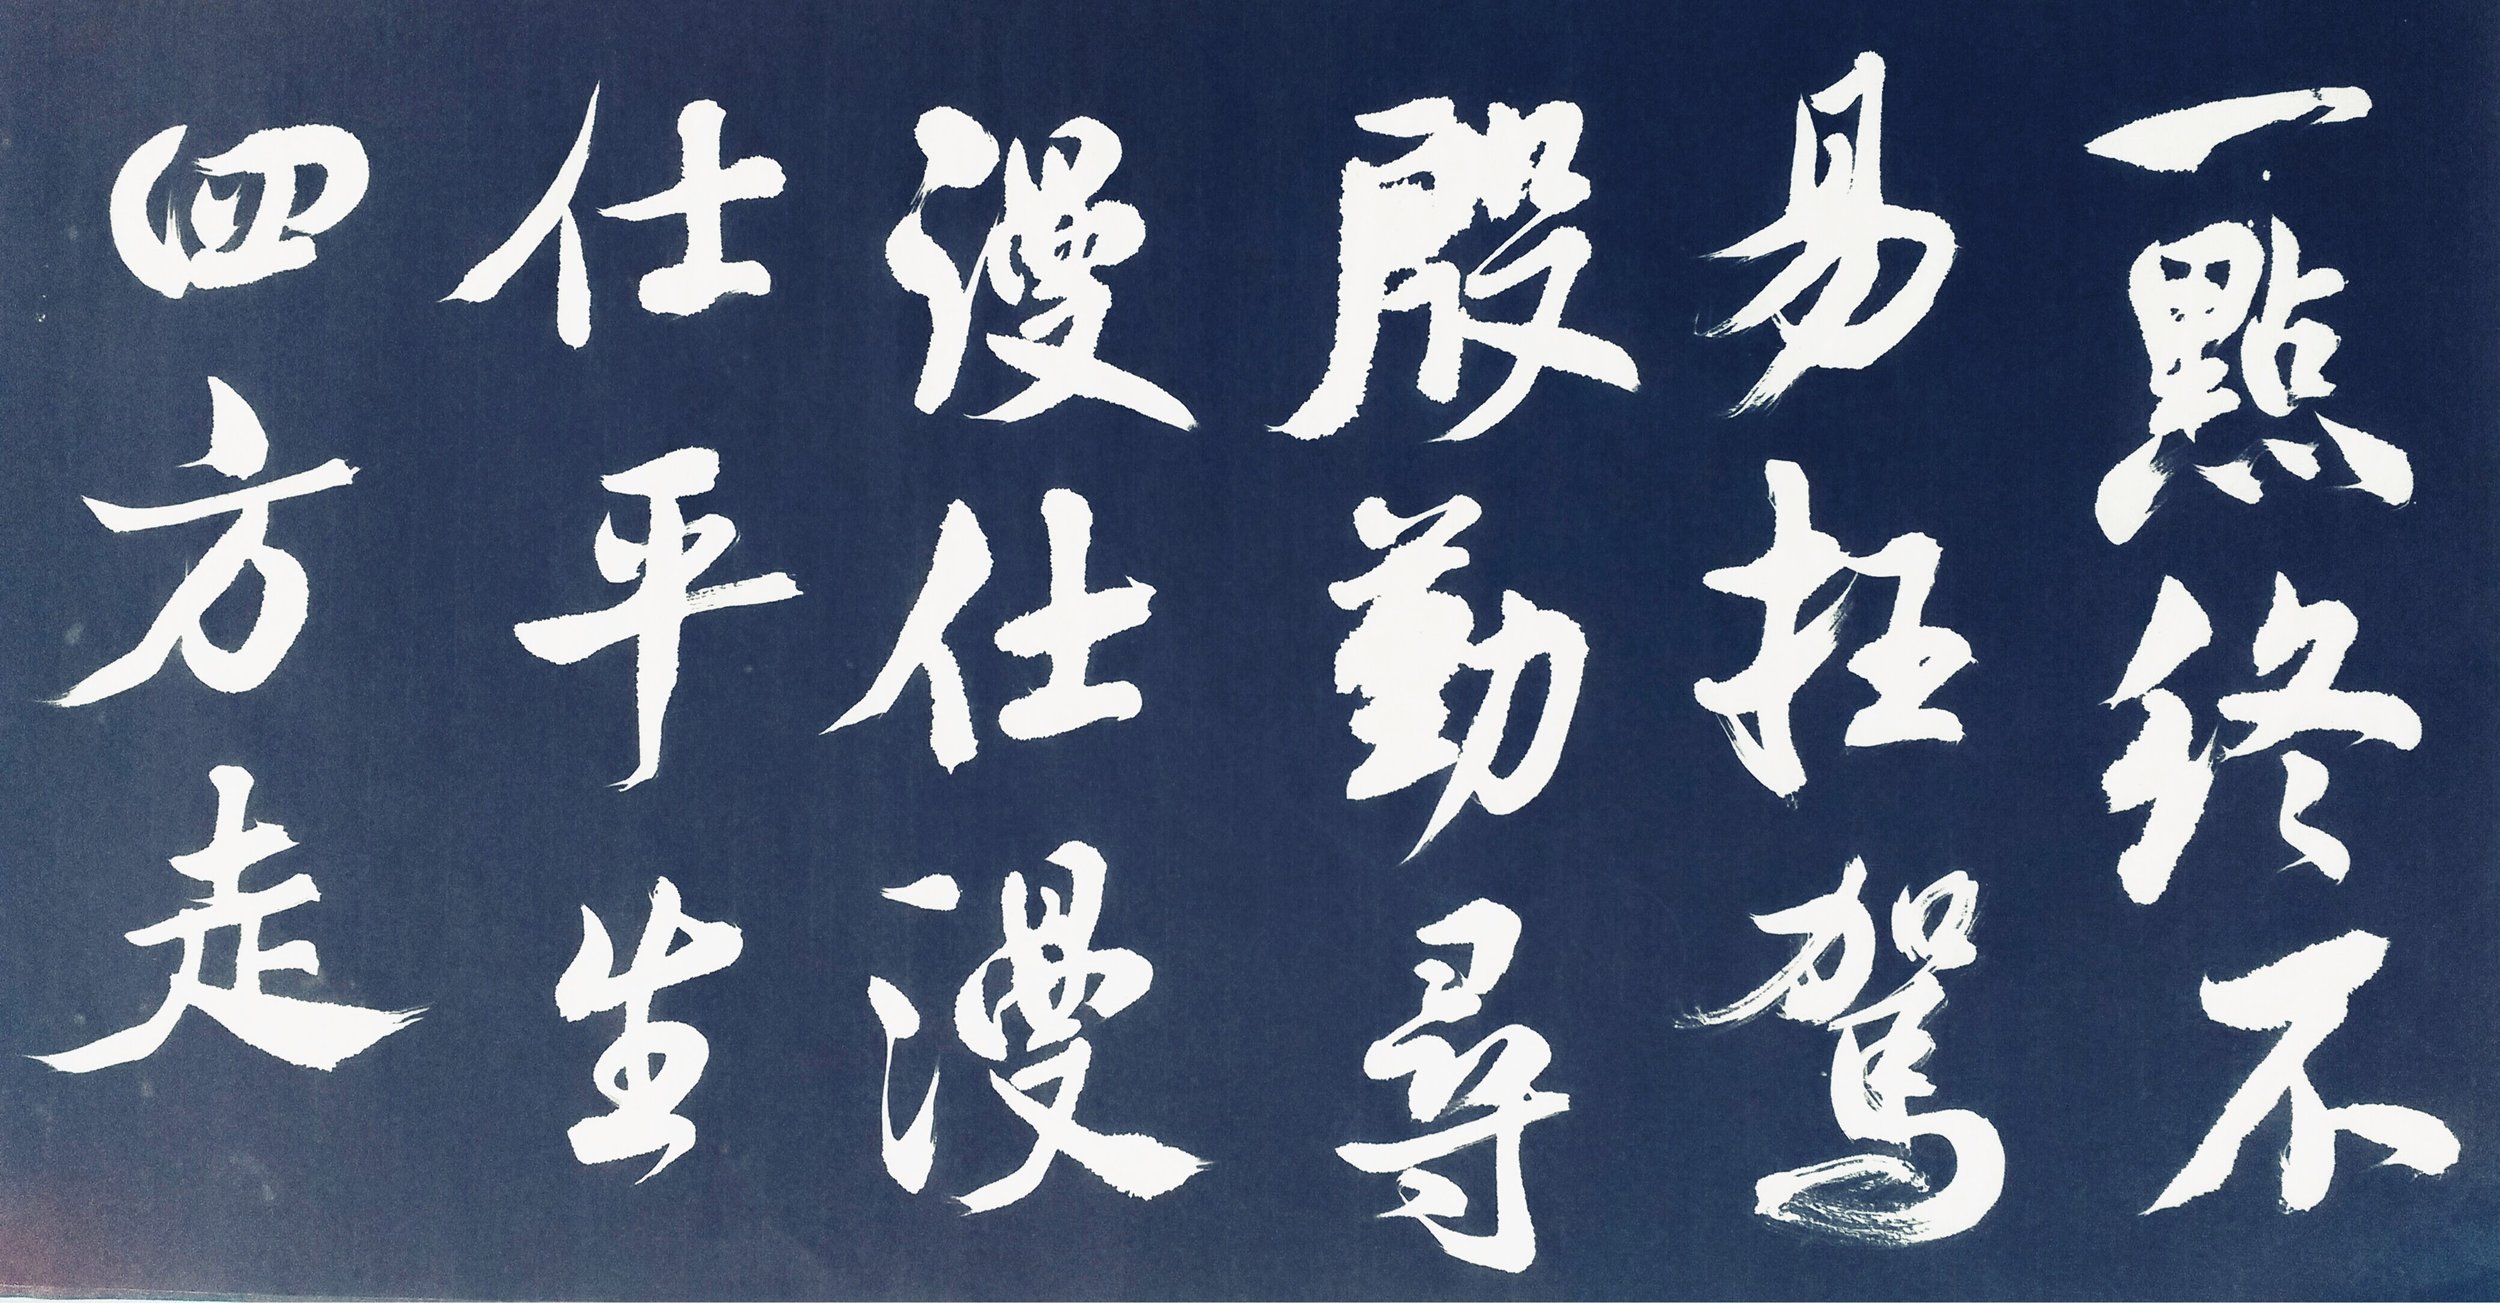 一點終不
易抂駕
殷勤尋
漫仕漫
仕平生
四方走